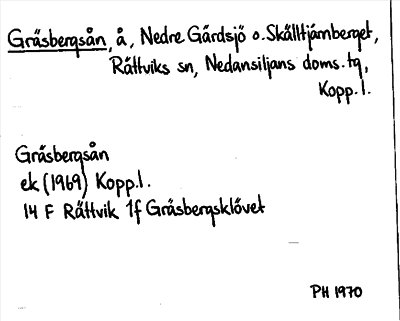 Gräsbergsån, å, Nedre Gärdsjö o. Skålltjärnberget,
Rättviks sn, Nedansiljans doms.tg,
Kopp.l.
Gräsbergsån
ek (1969) Kopp.l.
14 F Rättvik 1f Gräsbergsklövet
PH 1970